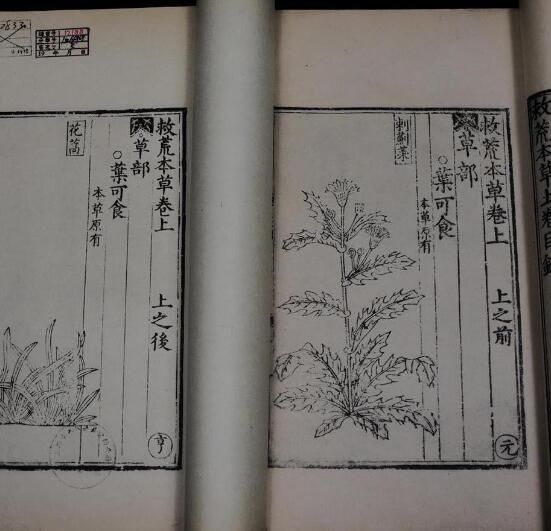 救荒本草上卷目錄
救荒本草卷上 上之前
草部
葉可食
本草原有
刺薊菜
元
救荒本草卷上 上之後
草部
葉可食
本草原有
花蒿
亨